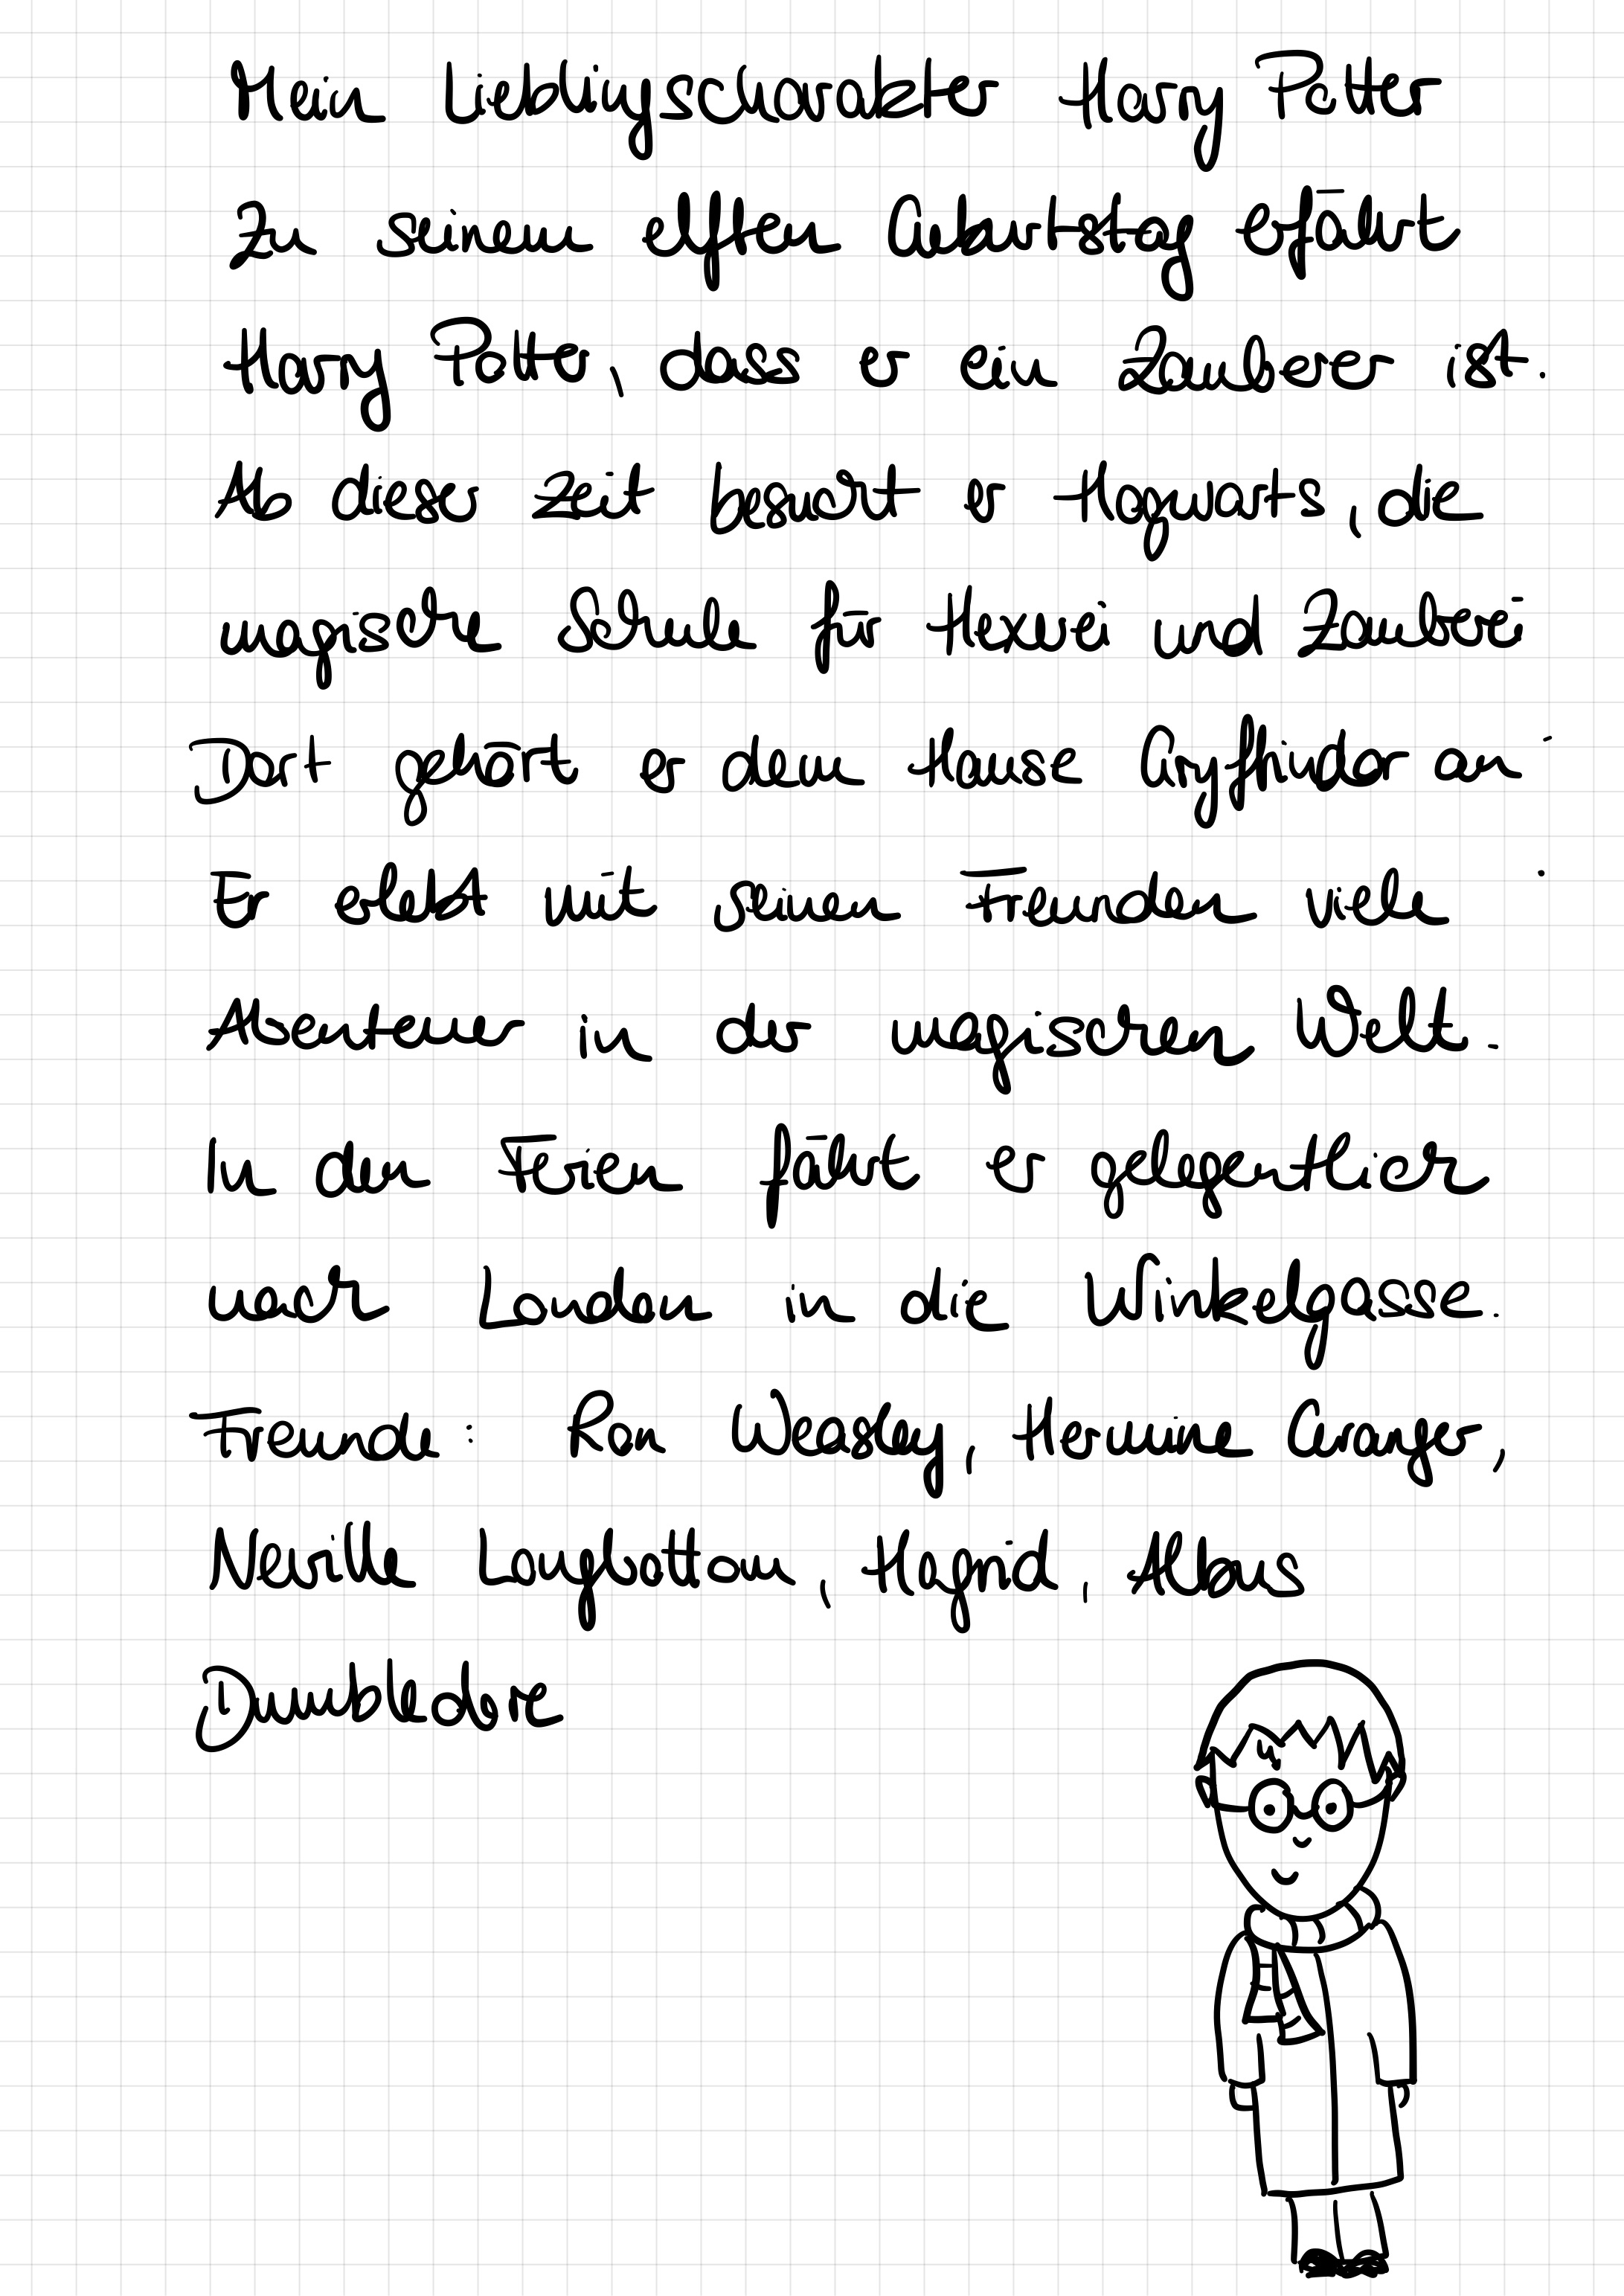 Mein Lieblingscharakter Harry Potter
Zu seinem elften Geburtstag erfährt
Harry Potter, dass er ein Zauberer ist.
Ab dieser Zeit besucht er Hogwarts, die
magische Schule für Hexerei und Zauberei
Dort gehört er dem Hause Gryffindor an
Er erlebt mit seinen Freunden viele
Abenteuer in der magischen Welt.
In den Ferien fährt er gelegentlich
nach London in die Winkelgasse.
Freunde: Ron Weasley, Hermine Granger,
Neville Longbottom, Hagrid, Albus
Dumbledore